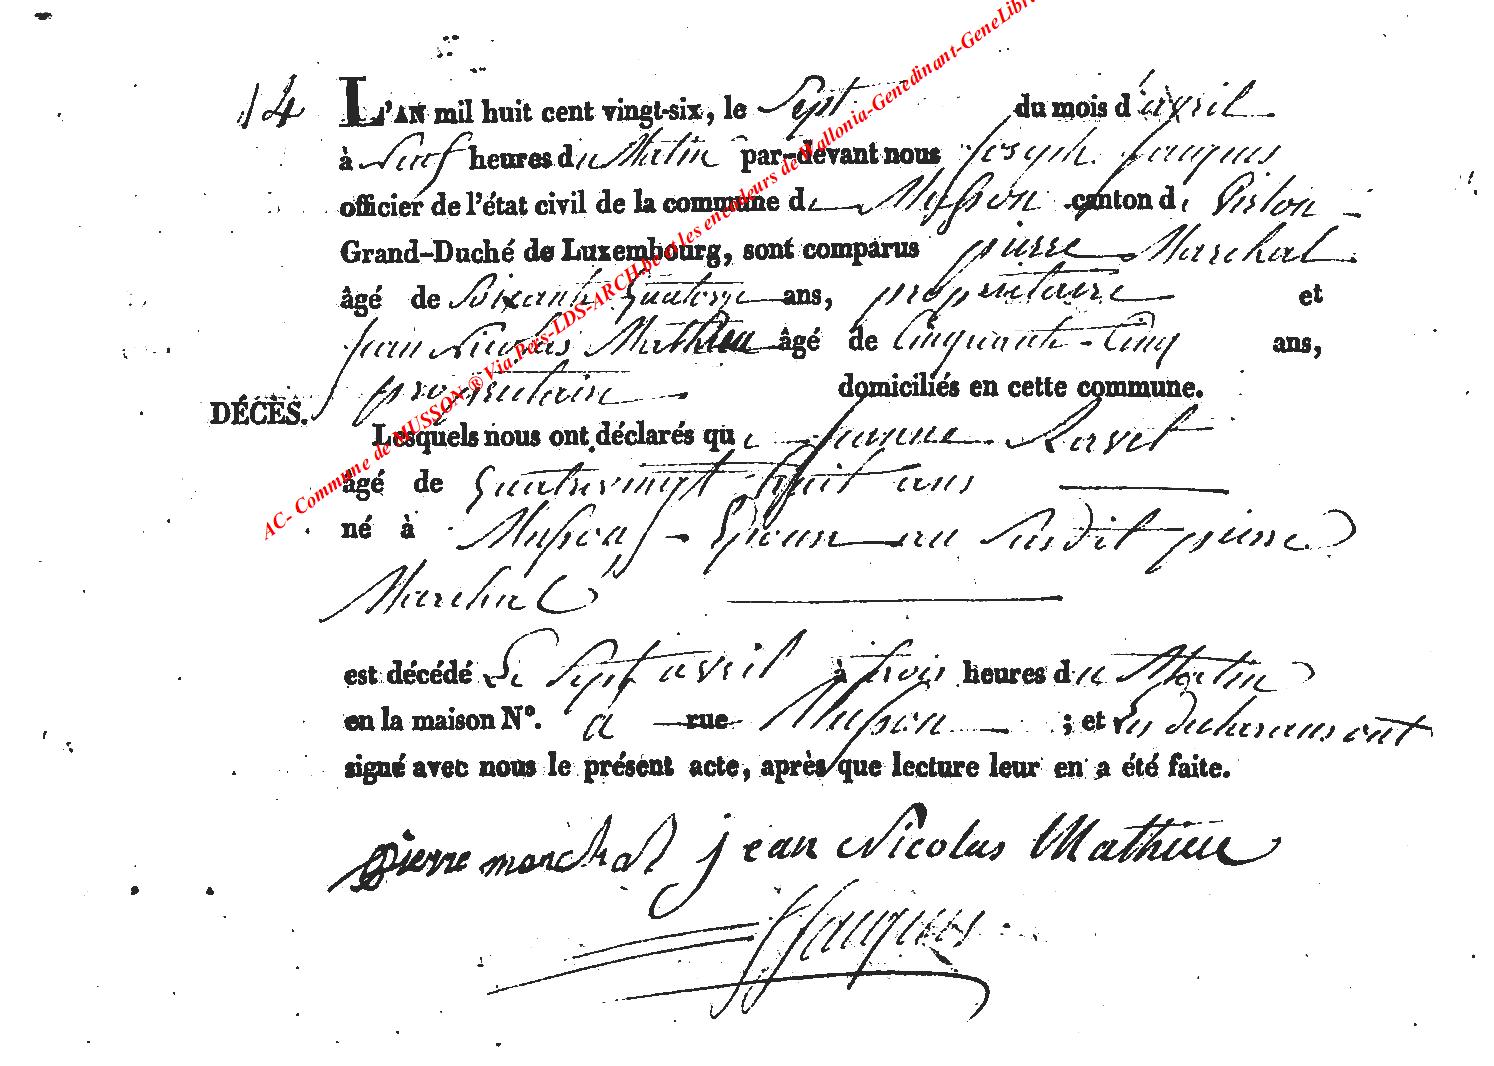 14 L'AN mil huit cent vingt-six, le Sept du mois d'avril
à Neuf heures du Matin par-devant nous Joseph Jacques
officier de l'état civil de la commune de Musson canton de Virton
Grand-Duché de Luxembourg, sont comparus pierre Marchal
âgé de Soixante Quatorze ans, propriétaire et
jean Nicolas Mathieu âgé de Cinquante-Cinq ans,
propriétaire domiciliés en cette commune.
DÉCÈS.
Lesquels nous ont déclarés que jeanne Ravet
âgé de Quatrevingt huit ans
né à Musson - Epouse au Susdit pierre
Marchal
est décédé Le Sept avril à trois heures du Matin
en la maison N°. à rue Musson ; et Les declarans ont
signé avec nous le présent acte, après que lecture leur en a été faite.
pierre marchal jean Nicolas Mathieu
JJacques
AC- Commune de MUSSON ® Via Pers-LDS-ARCH.be et les encodeurs de Mallonia-Genedinant-GeneLibr